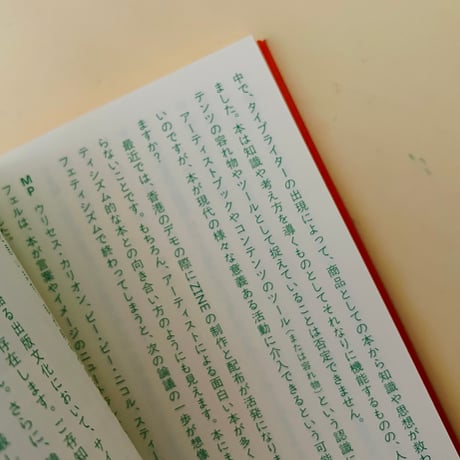 中で、タイプライターの出現によって、商品としての本から知識や思想が救わ
ました。本は知識や考え方を導くものとしてそれなりに機能するものの、人
テンツの容れ物やツールとして捉えていることは否定できません。
アーティストブックやコンテンツのツール（または容れ物）という認識に
いのですが、本が現代の様々な意義ある活動に介入できるという可能
ますか？
最近では、香港のデモの際にZINEの制作と配布が活発になりま
らないことです。もちろん、アーティストによる面白い本が多く
ティシズム的な本との向き合い方のようにも見えます。本に
フェティシズムで終わってしまうと、次の論議の一歩が想像
MP ウリセス・カリオン、ビー・ピー・ニコル、スティー
フェルは、本が言葉やイメージの二
る出版文化において、サイ
存在します。ご存知
さらに、